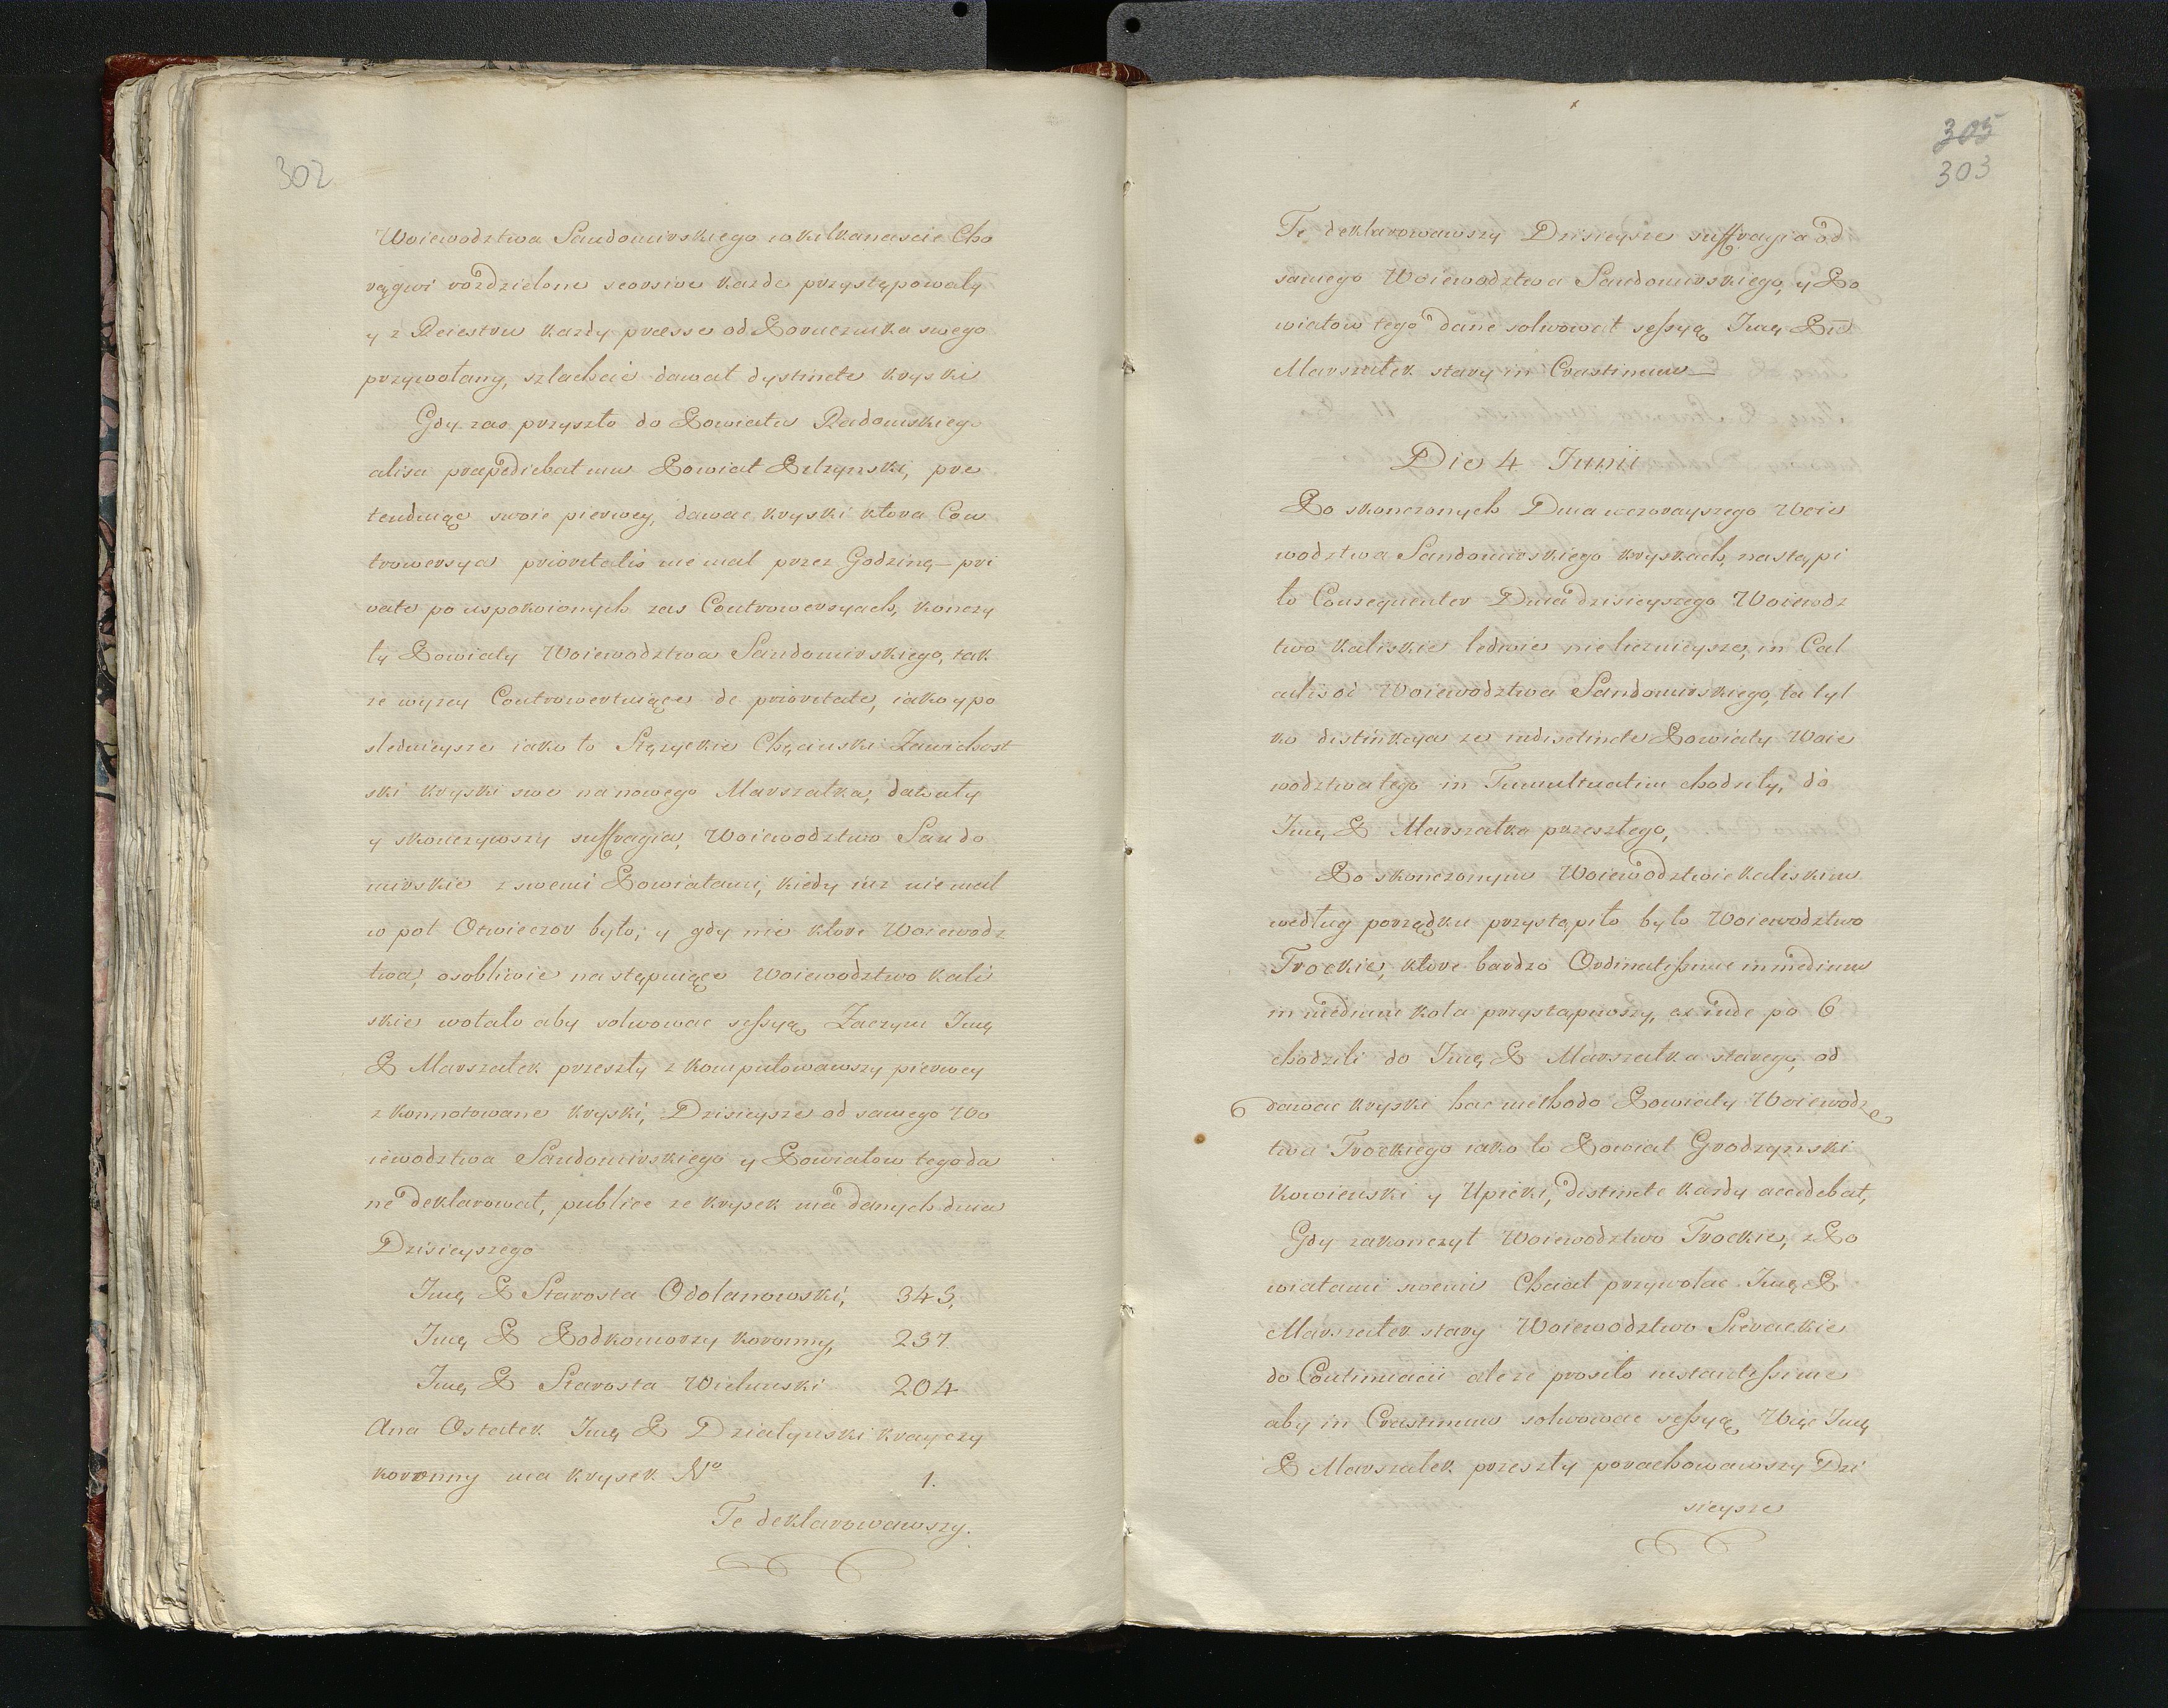 302
Woiewodztwa Sandomirskiego w kilkanascie Cho
rągwi rozdzielone seorsive kazde przystępowały
y z Reiestru kazdy praesse od Porucznika swego
przywołany, szlachcic dawał dystincte kryski
Gdy zas przyszło do Powiatu Radomskiego
alisci praepediebat mu Powiat Pilzynski, pre
tenduiąc swoie pierwey, dawac kryski ktora Con
trowersya prioritatis nie mal przez Godzinę pri
vate po uspokoionych zas Controwersyach, kończy
ły Powiaty Woiewodztwa Sandomirskiego, tak
ze wyzey Controwertuiące de prioritate, iako y po
slednieysze iako to Stęzyckie Chęcinski Zawichost
ski kryski swe na nowego Marszałka, dawały
y skonczywszy suffragia, Woiewodztwo Sando
mirskie z swemi Powiatami, kiedy iuz nie mal
w poł Owieczor było; y gdy nie ktore Woiewodz
twa, osobliwie następuiące Woiewodztwo Kali
skie wołało aby solwowac sessyą, Zaczym Jmę
P Marszałek przeszły z komputowawszy pierwey
z konnotowane kryski, Dzisieysze od samego Wo
iewodztwa Sandomirskiego y Powiatow tego da
ne deklarował, publice ze krysek ma danych dnia
Dzisieyszego
Jmę P Starosta Odolanowski, 343,
Jmę P Podkomorzy koronny, 237
Jmę P Starosta Wielunski 204
Ana Ostatek Jmę P Działynski krayczy
koronny ma krysek No 1.
Te deklarowawszy.
305
303
Te deklarowawszy Dzisieysze suffragia od
samego Woiewodztwa Sandomirskiego, y Po
wiatow tego dane solwował sessyą Jmę Pn
Marszałek stary in Crastinum
Die 4 Junii
Po skonczonych Dnia wczorayszego Woie
wodztwa Sandomirskiego kryskach, nastąpi
ło Consequenter Dnia dzisieyszego Woiewodz
two kaliskie ledwie nie licznieysze, in Cal
culis od Woiewodztwa Sandomirskiego, ta tyl
ko distinkcya ze indistincte Powiaty Woie
wodztwa tego in Tumultuatim chodziły, do
Jmę P Marszałka przeszłego,
Po skonczonym Woiewodztwie kaliskim
według porządku przystąpiło było Woiewodztwo
Trockie, ktore bardzo Ordinatissime in medium
in medium koła przystąpiwszy, ex inde po 6
chodzili do Jmę P Marszałka starego, od
dawac kryski hac methodo Powiaty Woiewodz
twa Trockiego iako to Powiat Grodzynski
Kowienski y Upicki, distincte kazdy accedebat,
Gdy zakonczył Woiewodztwo Trockie, z Po
wiatami swemi Chciał przywołac Jmę P
Marszałek stary Woiewodztwo Sieradzkie
do Continuacii ale ze prosiło instantissime
aby in Crastinum solwowac sessyą, Więc Jmę
P Marszałek przeszły porachowawszy Dzi
sieysze